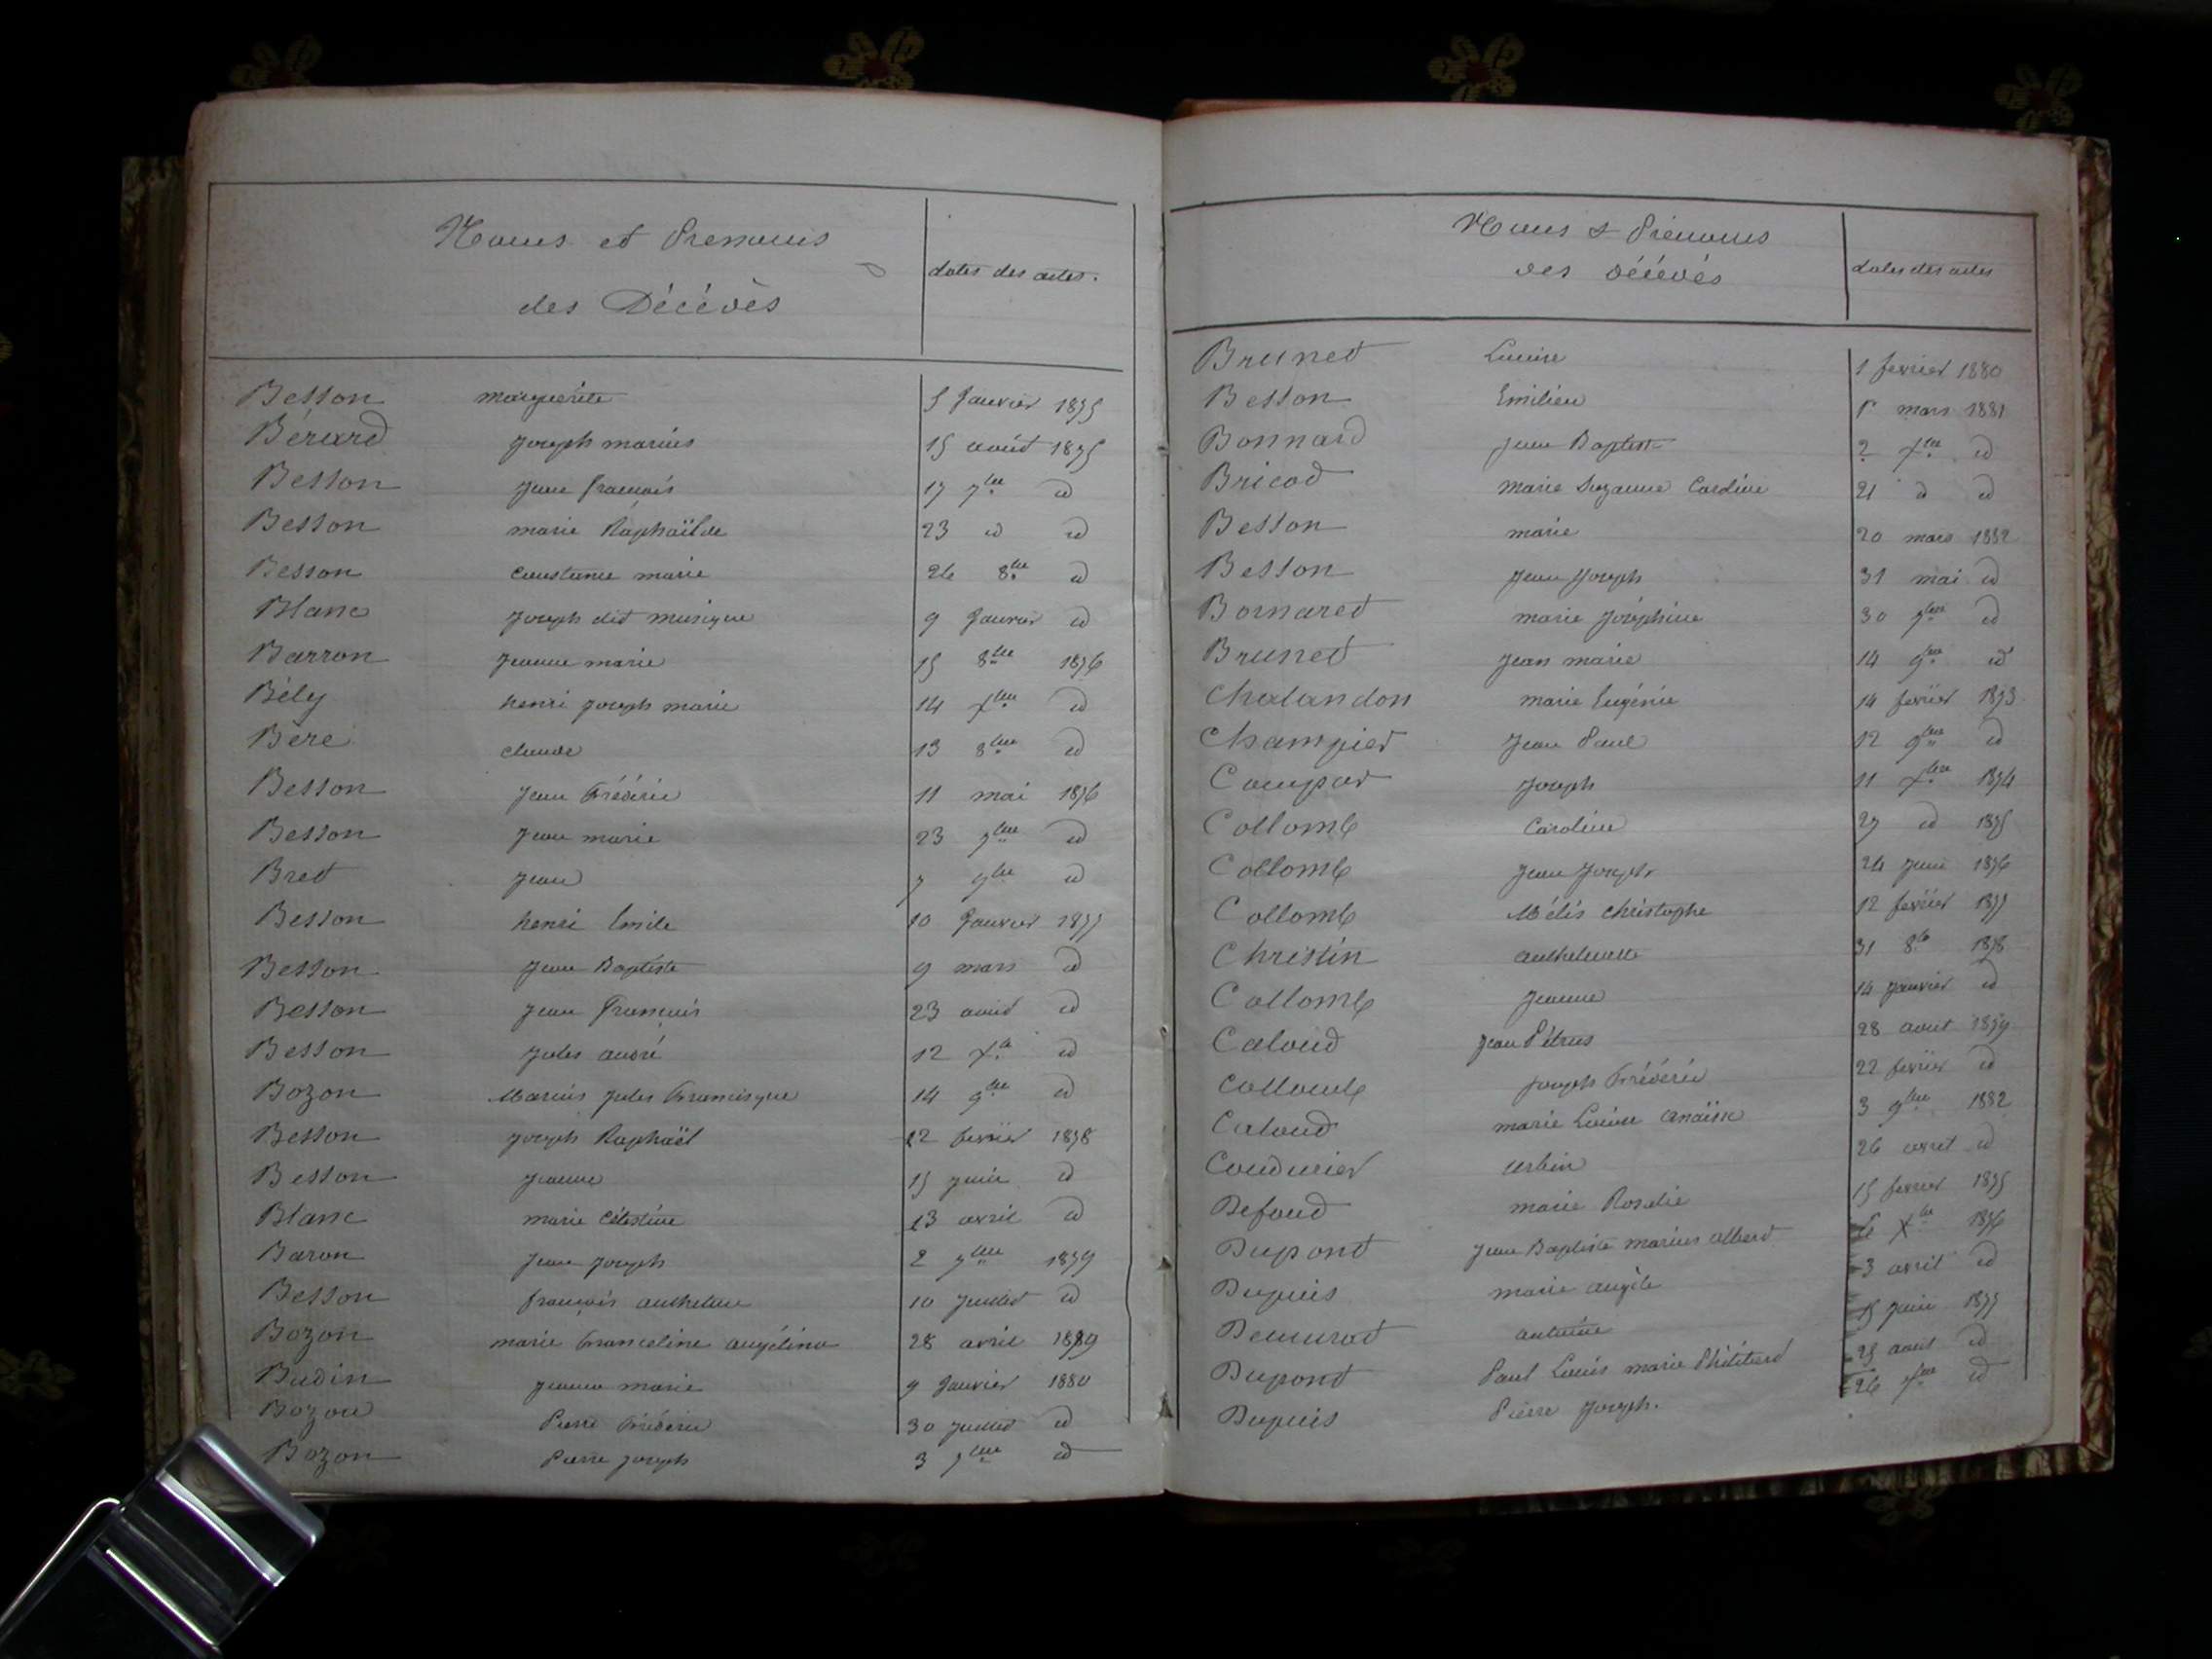 Noms et Prenoms
des Décédés
dates des actes.
Besson marguerite 5 Janvier 1875
Bérard Joseph marius 15 août 1875
Besson Jean françois 17 7bre id
Besson marie Raphaïlde 23 id id
Besson Constance marie 26 8bre id
Blanc Joseph dit musique 9 Janvier id
Barron Jeanne marie 15 8bre 1876
Bély henri Joseph marie 14 Xbre id
Béré claude 13 8bre id
Besson Jean Frédéric 11 mai 1876
Besson Jean marie 23 7bre id
Bret Jean 7 9bre id
Besson henri Emile 10 Janvier 1877
Besson Jean Baptiste 9 mars id
Besson Jean François 23 août id
Besson Jules andré 12 Xbre id
Bozon Marius Jules Francisque 14 9bre id
Besson Joseph Raphaël 12 février 1878
Besson Jeanne 15 Juin id
Blanc marie Célestine 13 avril id
Baron Jean Joseph 2 7bre 1879
Besson françois anthelme 10 Juillet id
Bozon marie Franceline angélina 28 avril 1879
Budin Jeanne marie 9 Janvier 1880
Bozon Pierre Frédéric 30 Juillet id
Bozon Pierre Joseph 3 7bre id
Noms & Prénoms
des décédés
dates des actes
Brunet Lucine 1 fevrier 1880
Besson Emilien 1r mars 1881
Bonnard Jean Baptiste 2 Xbre id
Bricod marie Suzanne Caroline 21 id id
Besson marie 20 mars 1882
Besson Jean Joseph 31 mai id
Bornaret marie Joséphine 30 7bre id
Brunet Jean marie 14 9bre id
Chalandon marie Eugénie 14 fevrier 1873
Champier Jean Paul 12 9bre id
Joseph 11 Xbre 1874
Collomb Caroline 27 id 1875
Collomb Jean Joseph 24 Juin 1876
Collomb Mélis christophe 12 fevrier 1877
Christin anthelmette 31 8bre 1878
Collomb Jeanne 14 Janvier id
Caloud Jean Pétrus 28 aout 1879
Collomb Joseph Frédéric 22 fevrier id
Caloud marie Lucine anaïse 3 9bre 1882
Coudurier urbin 26 avril id
Defoud marie Rosalie 15 fevrier 1875
Dupont Jean Baptiste marius albert 6 Xbre 1876
Dupuis marie angèle 3 avril id
Demurat antoine 15 Juin 1877
Dupont Paul Louis marie Philibert 25 aout id
Dupuis Pierre Joseph. 26 Xbre id